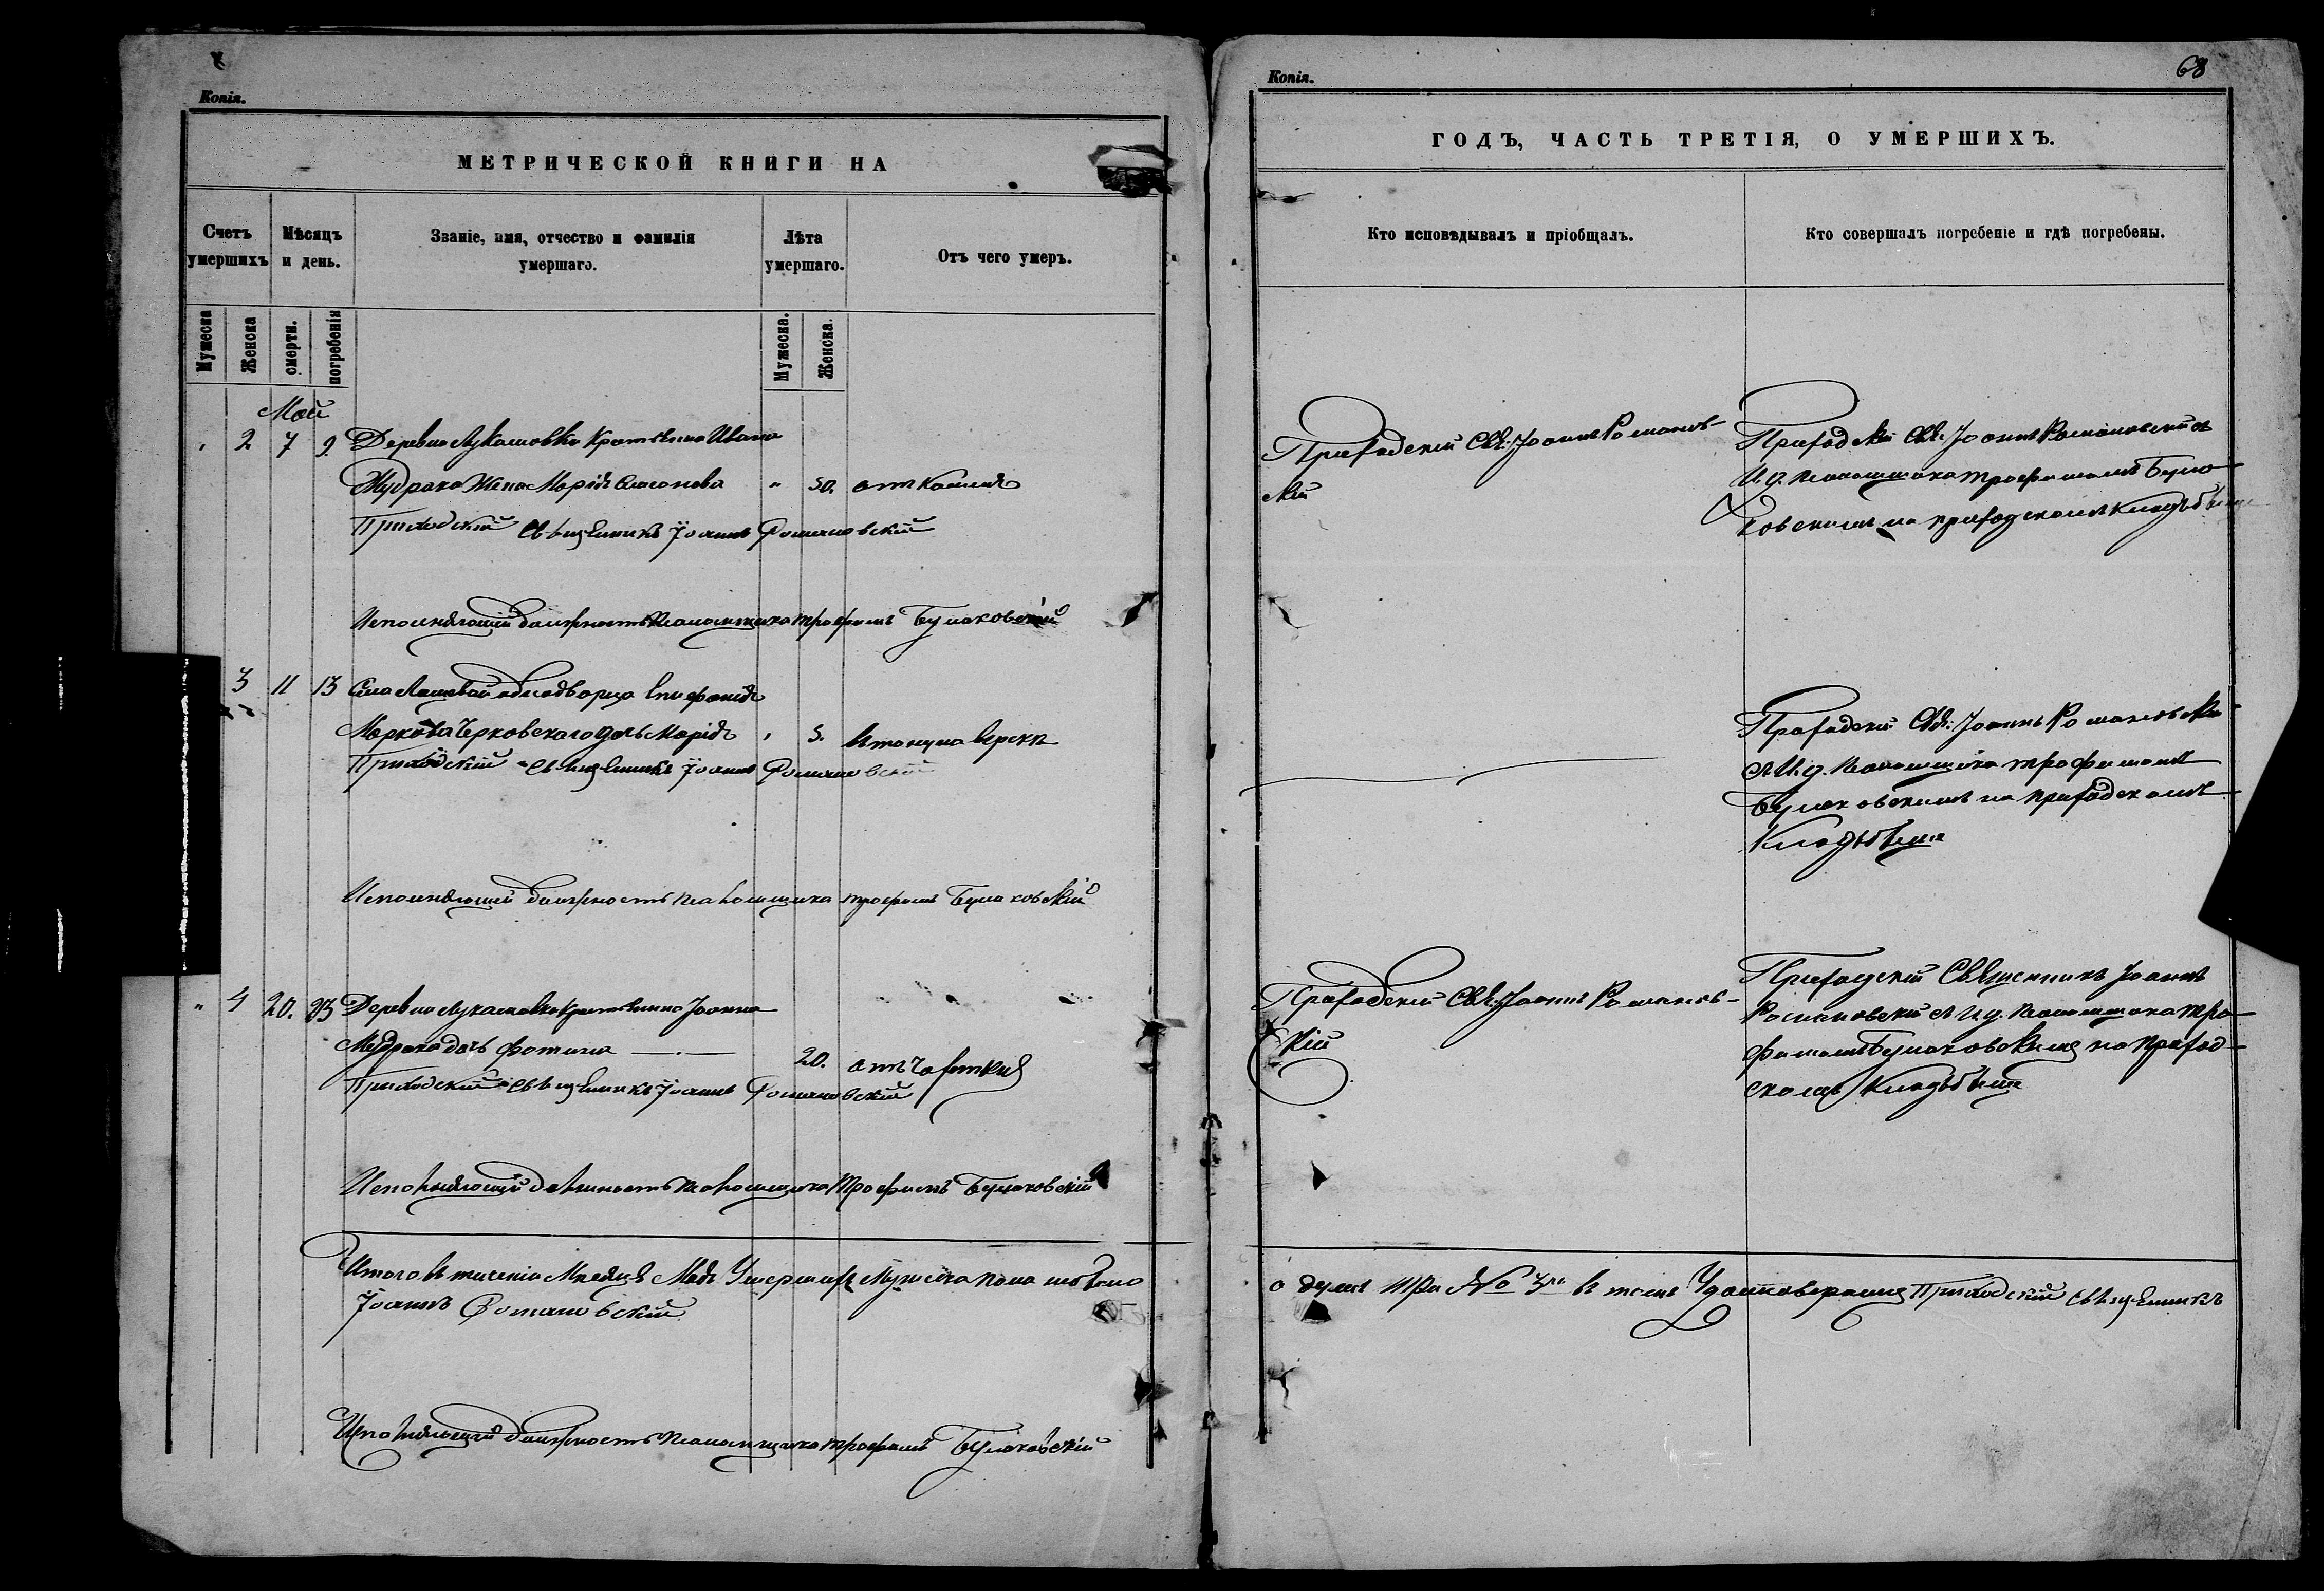 Копія.
МЕТРИЧЕСКОЙ КНИГИ НА
Счетъ умершихъ
Мѣсяцъ и день.
Званіе, имя, отчество и фамилія умершаго.
Лѣта умершаго.
Отъ чего умеръ.
Мужеска
Женска
смерти.
погребенія
Мужеска.
Женска.
Май
2 7 9. Деревни Лукашовки Крестьянина Ивана
Мудрака Жена Марія Симонова " 50. отъ Кашля
Приходскій Священникъ Іоаннъ Романовскій
Исполняющій должность Псаломщика Трофимъ Булаховскій
3 11 13 Села однодворца Епифанія
Маркова Черковскаго дочь Марія 3. Утонула
Приходскій Священникъ Іоаннъ Романовскій
Исполняющій должность Псаломщика Трофимъ Булаховскій
" 4 20. 23 Деревни Лукашовки Крестьянина Іоанна
Мудрака дочь Фотина 20. отъ Чахотки
Приходскій Священникъ Іоаннъ Романовскій
Исполняющій должность Псаломщика Трофимъ Булаховскій
Итого въ теченіи Месяца Мая Умершихъ Мужеска пола
Іоаннъ Романовскій
Исполняющій должность Псаломщика Трофимъ Булаховскій
Копія.
68
ГОДЪ, ЧАСТЬ ТРЕТІЯ, О УМЕРШИХЪ.
Кто исповѣдывалъ и пріобщалъ.
Кто совершалъ погребеніе и гдѣ погребены.
Приходскій Свя: Іоаннъ Романов-
скій
Приходскій Свя: Іоаннъ Романовскій съ
И.д. Псаломщика Трофимомъ Була-
ховскимъ на приходскомъ кладбище
Приходскій Свя: Іоаннъ Романовскій
съ И.д. Псаломщика Трофимомъ
Булаховскимъ на приходскомъ
Кладбище
Приходскій Свя: Іоаннъ Романов-
скій
Приходскій Священникъ Іоаннъ
Романовскій съ И.д. Псаломщика Тро-
фимомъ Булаховскимъ на приход-
скомъ Кладбище
душъ три № 3 въ томъ Удостоверяемъ Приходскій Священникъ